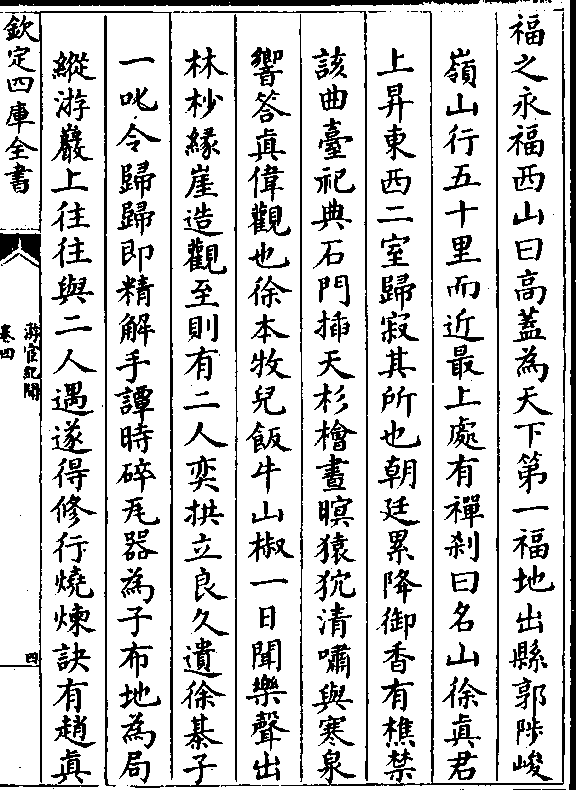 福之永福西山曰髙葢為天下第一福地出縣郭陟峻
嶺山行五十里而近最上處有禪刹曰名山徐真君
上昇東西二室歸寂其所也朝廷累降御香有樵禁
該曲臺祀典石門揷天杉檜晝瞑猿狖清嘯與寒泉
響答真偉觀也徐本牧兒飯牛山椒一日聞樂聲出
林杪緣崖造觀至則有二人奕拱立良久遺徐棊子
一叱令歸歸即精解手譚時碎瓦器為子布地為局
縱游巖上往往與二人遇遂得修行燒煉訣有趙真
欽定四庫全書
游宦紀聞
卷四
四